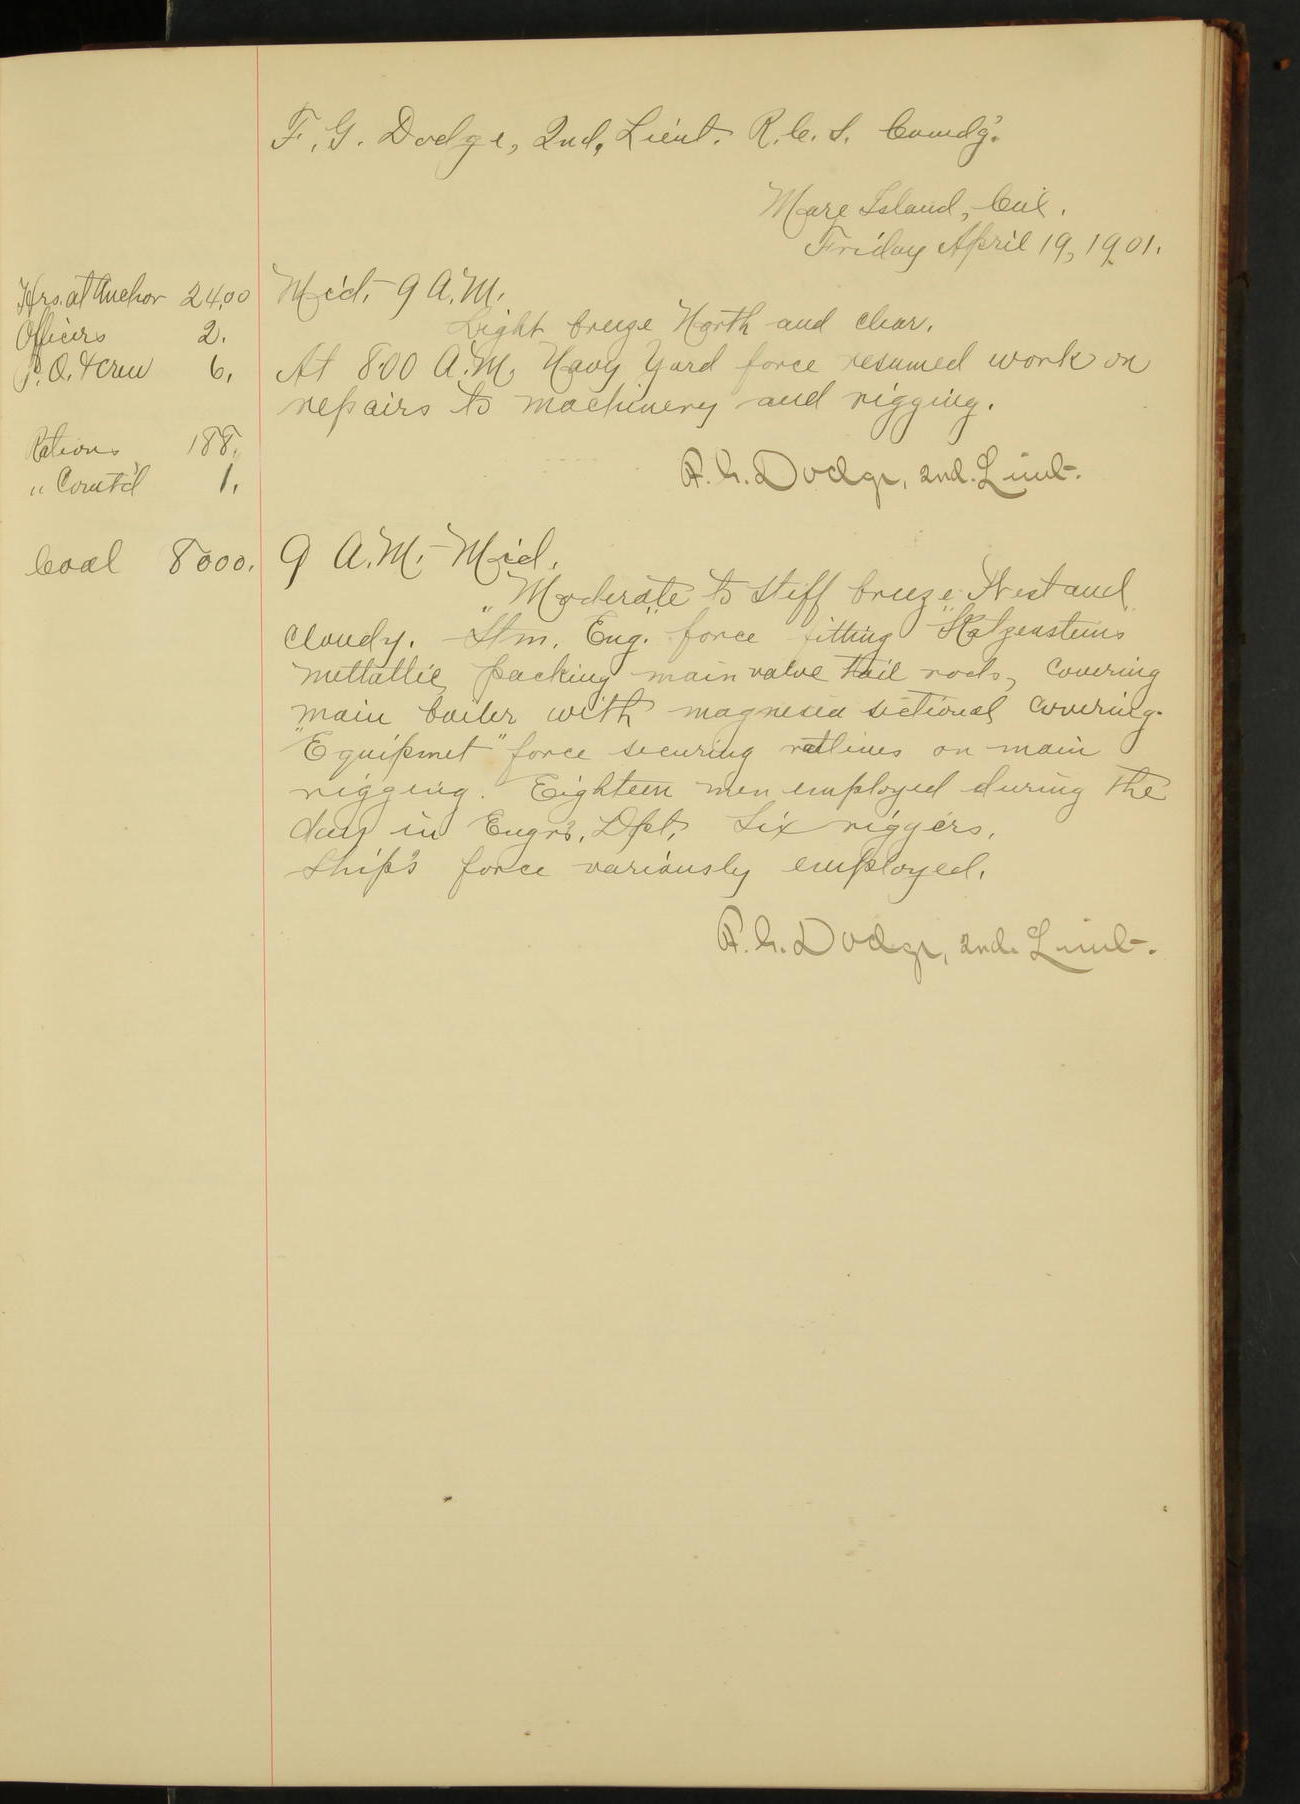 F. G. Dodge, 2nd. Lieut. R. C. S. Comdg.
Mare Island, Cal.
Friday April 19, 1901.
Hrs. at Anchor 24.00
Officers 2.
P. O. & crew 6.
Rations 188.
" Comt'd 1.
Coal 8000.
Mid. - 9 A.M.
Light breeze North and clear.
At 8.00 A.M. Navy Yard force resumed work on
repairs to machinery and rigging.
F. G. Dodge, 2nd. Lieut.
9 A.M. - Mid.
Moderate to stiff breeze West and
cloudy. "Stm. Eng." force fitting "Katzensteins"
mettallic packing main valve tail rods, covering
main boiler with magnesia sectional covering.
"Equipmet" force securing ratlines on main
rigging. Eighteen men employed during the
day in Engr's. Dpt. Six riggers.
Ship's force variously employed.
F. G. Dodge, 2nd. Lieut.